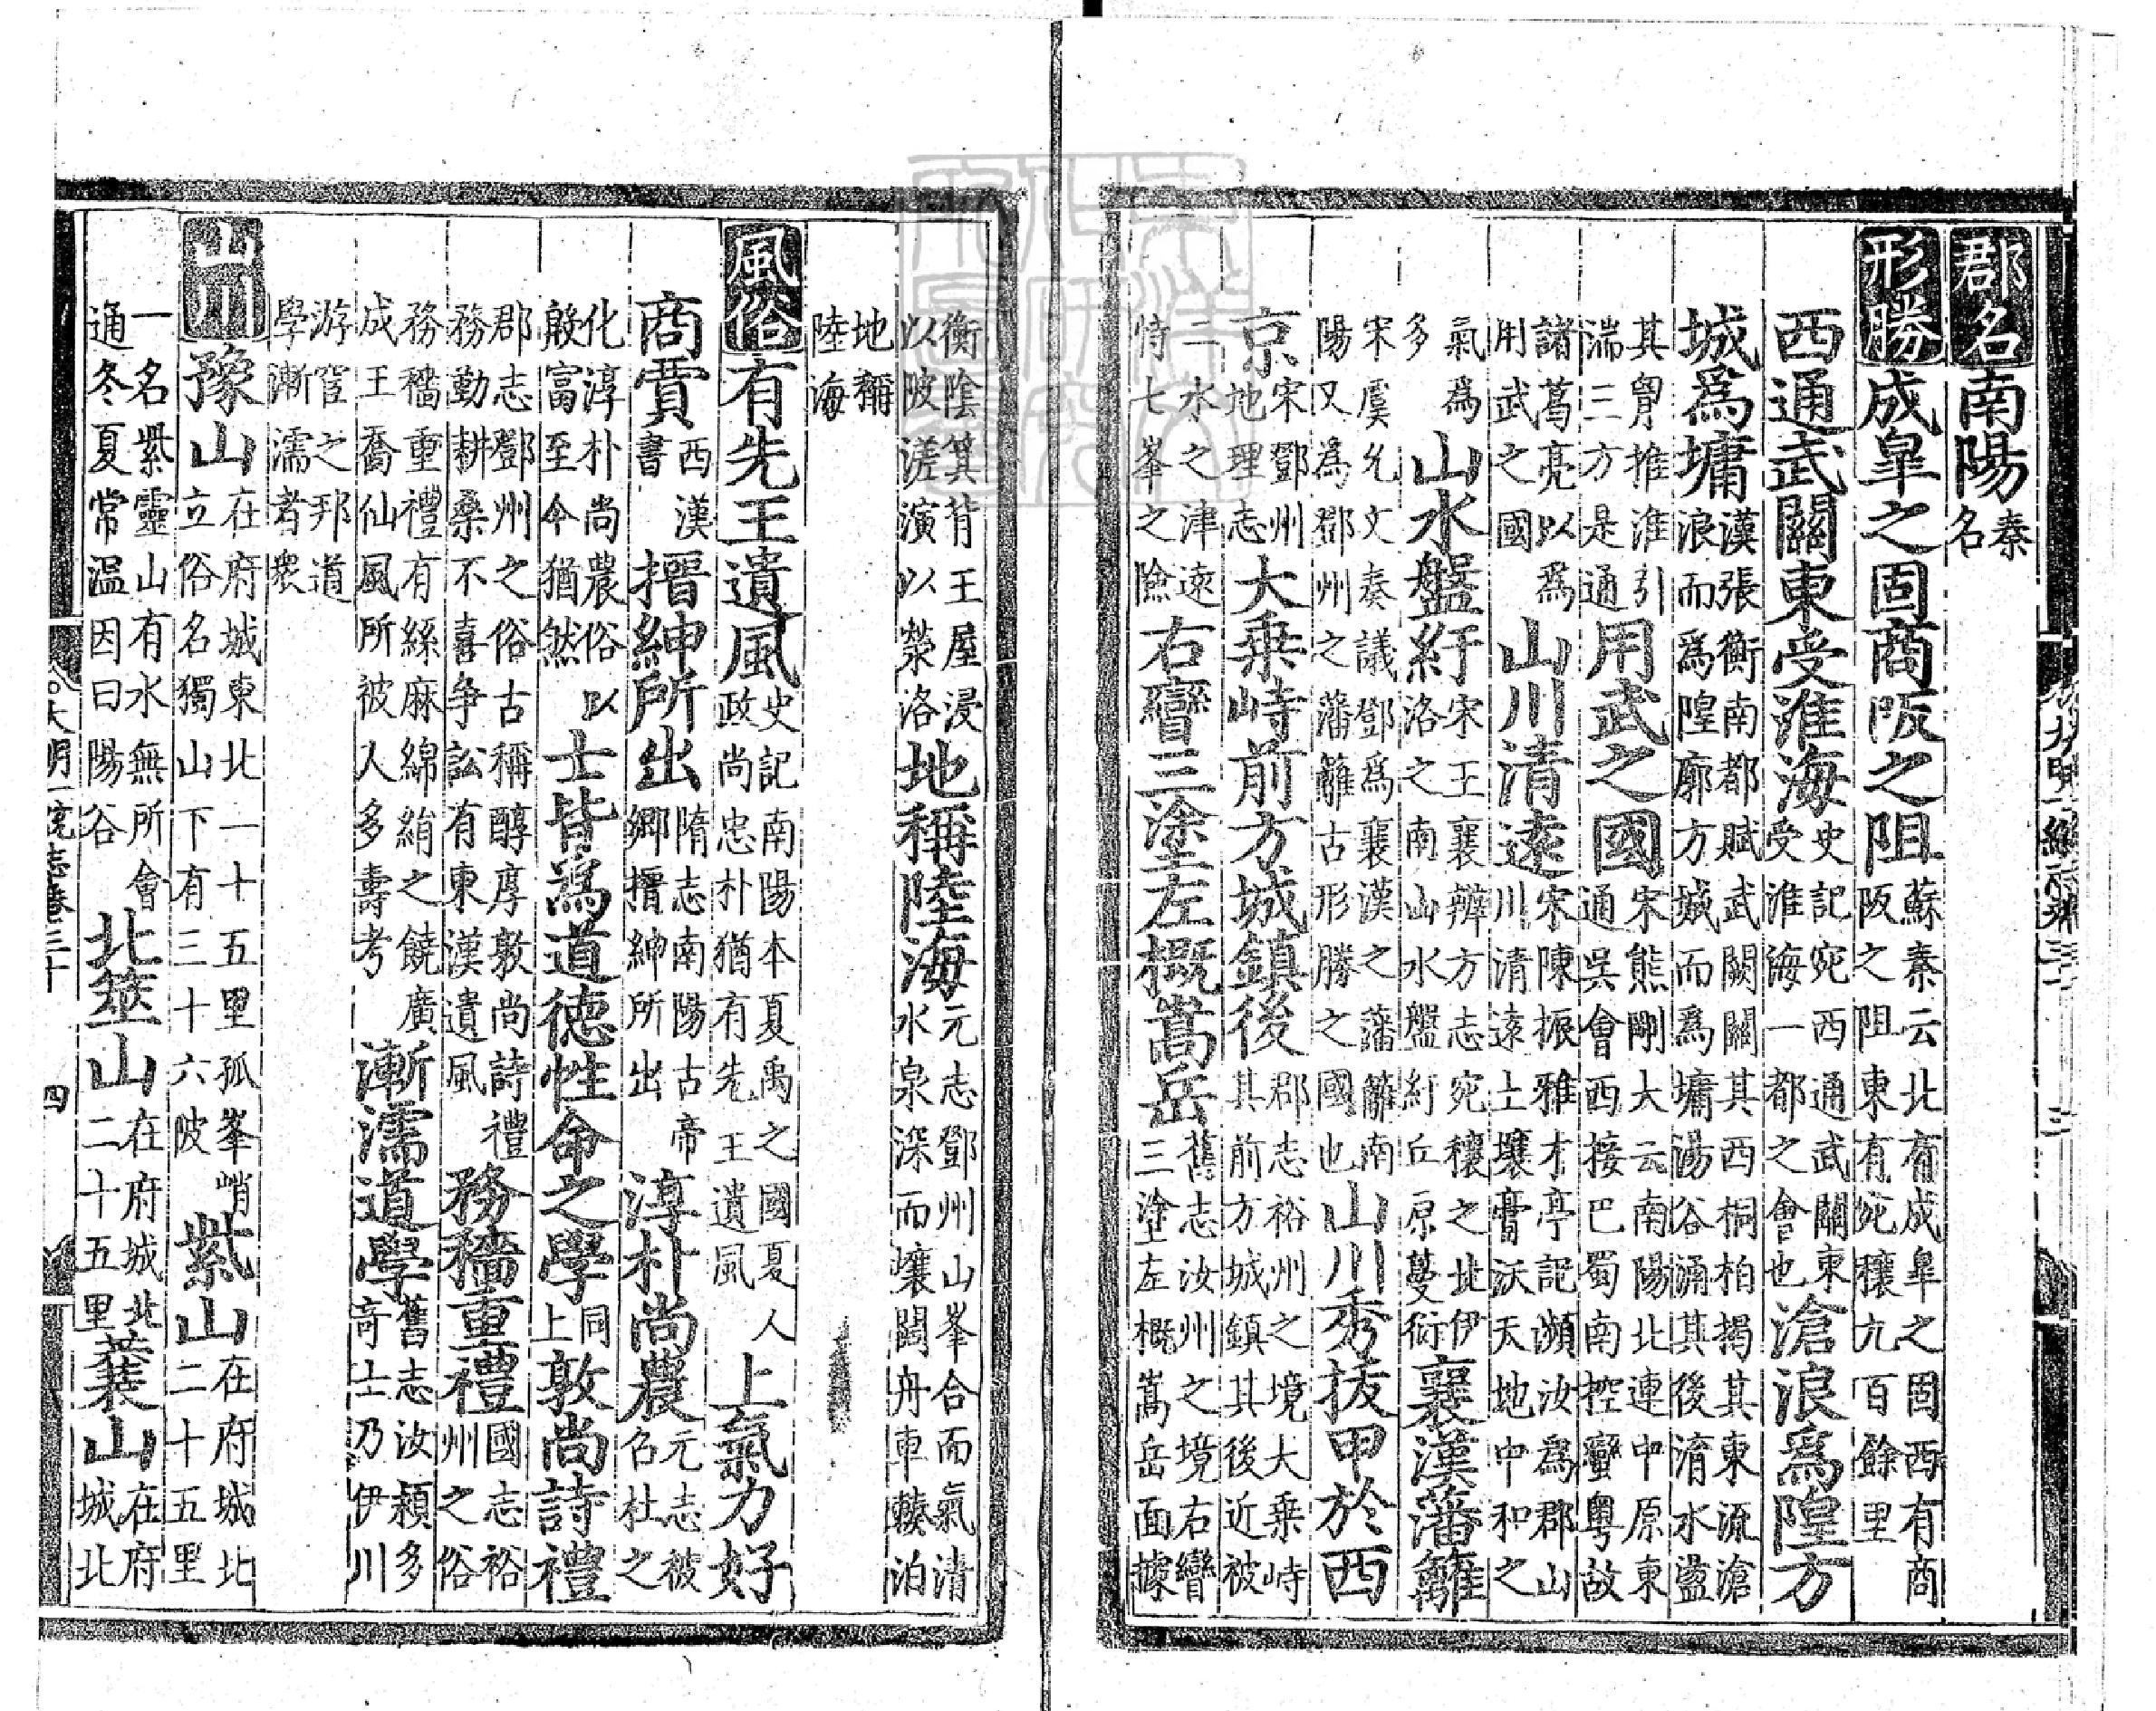 郡名南陽秦名
形勝成皐之固商阪之阻蘇秦云北有成皐之固西有商阪之阻東有宛穰九百餘里
西通武關東受淮海史記宛西通武關東受淮海一都之會也滄浪爲隍方
城爲墉漢張衡南都賦武闕關其西桐柏揭其東流滄浪而爲隍廓方城而爲墉湯谷涌其後淯水盪
其胷推淮引湍三方是通用武之國宋熊剛大云南陽北連中原東通吳會西接巴蜀南控蠻粤故
諸葛亮以爲用武之國山川清遠宋陳振雅才亭記瀕汝爲郡山川清遠土壤膏沃天地中和之
氣爲多山水盤紆宋王襄辨方志宛穰之北伊洛之南山水盤紆丘原蔓衍襄漢藩籬
宋虞允文奏議鄧爲襄漢之藩籬南陽又爲鄧州之藩籬古形勝之國也山川秀拔甲於西
京宋鄧州地理志大乗峙前方城鎮後郡志裕州之境大乗峙其前方城鎮其後近被
二水之津遠恃七峯之險右轡三塗左概嵩岳舊志汝州之境右轡三塗左概嵩岳面據
衡陰箕背王屋浸以陂溠演以滎洛地稱陸海元志鄧州山峯合而氣清水泉深而壤闊舟車輳泊
地稱陸海
風俗有先王遺風史記南陽本夏禹之國夏人政尚忠朴猶有先王遺風上氣力好
商賈西漢書搢紳所出隋志南陽古帝鄉搢紳所出淳朴尚農元志彼召杜之
化淳朴尚農俗以殷富至今猶然士皆爲道德性命之學同上敦尚詩禮
郡志鄧州之俗古稱醇厚敦尚詩禮務勤耕桑不喜争訟有東漢遺風務穡重禮國志裕州之俗
務穡重禮有絲麻綿絹之饒廣成王喬仙風所被人多壽考漸濡道學舊志汝潁多奇士乃伊川
游宦之邦道學漸濡者衆
山川豫山在府城東北一十五里孤峯峭立俗名獨山下有三十六陂紫山在府城北二十五里
一名紫靈山有水無所會通冬夏常温因曰陽谷北筮山在府城北二十五里蘘山在府城北
大明一統志卷三十
四